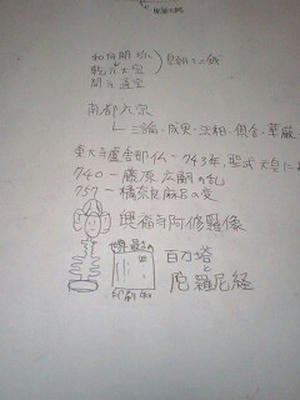 和同開珎
乾元大宝
開元通宝
皇朝十二銭
南都六宗
三論・成実・法相・倶舎・華厳
東大寺盧舎那仏－743年、聖武天皇に
740－藤原広嗣の乱
757－橘奈良麻呂の変
興福寺阿修羅像
世界最古
印刷物
百万塔
と
陀羅尼経